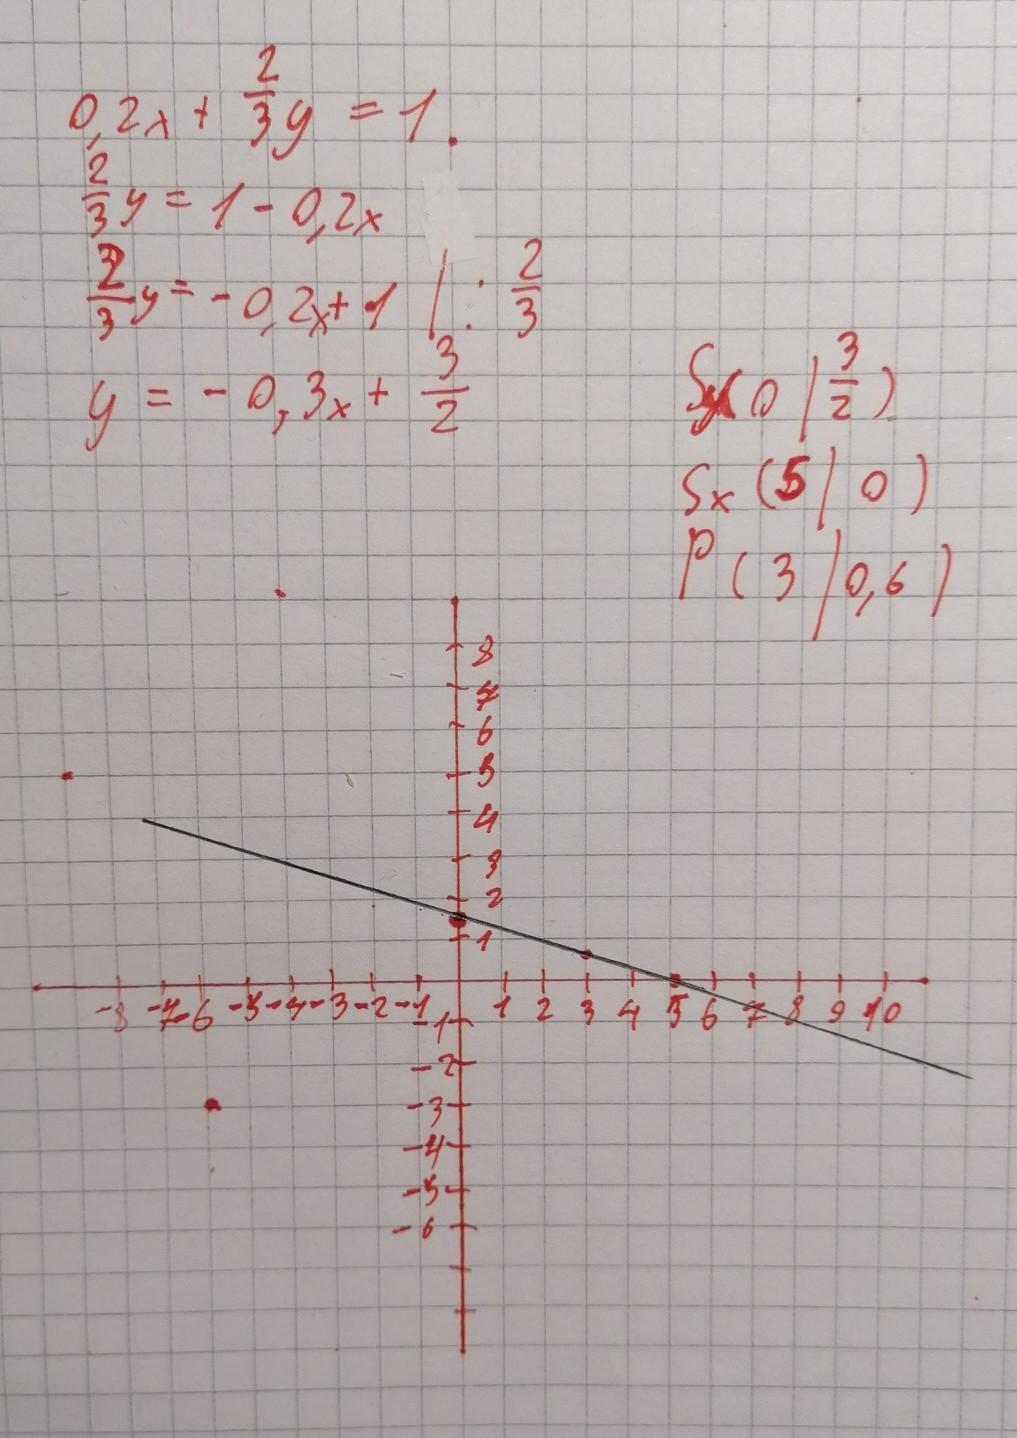 0,2x + 2/3 y = 1.
2/3 y = 1 - 0,2x
2/3 y = -0,2x + 1 | : 2/3
y = -0,3x + 3/2
Sy(0 | 3/2)
Sx (5 | 0)
P (3 | 0,6)
8
7
6
5
4
3
2
1
-8 -7 -6 -5 -4 -3 -2 -1 1 2 3 4 5 6 7 8 9 10
-1
-2
-3
-4
-5
-6